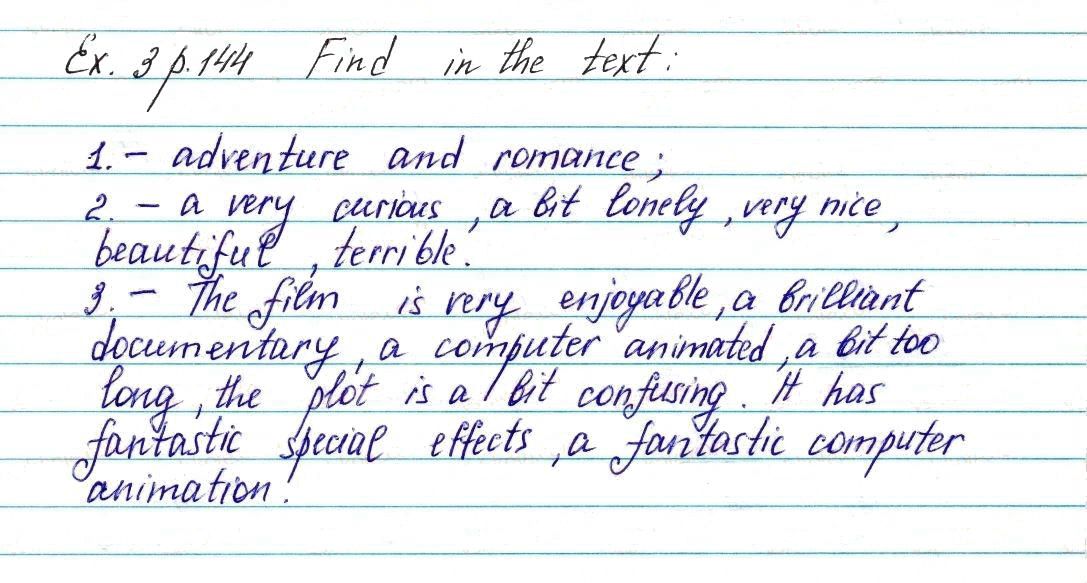 Ex. 3 p.144 Find in the text:
1. - adventure and romance;
2. - a very curious, a bit lonely, very nice,
beautiful, terrible.
3. - The film is very enjoyable, a brilliant
documentary, a computer animated, a bit too
long, the plot is a bit confusing. It has
fantastic special effects, a fantastic computer
animation.